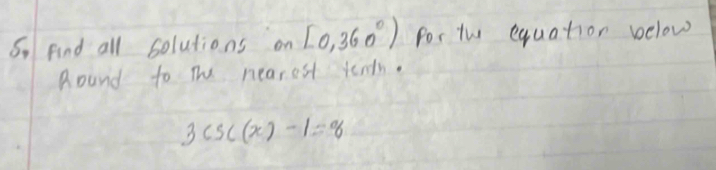 5. Find all solutions on [0,360°) for the equation below
Round to the nearest tenth.
3csc(x) - 1 = 8